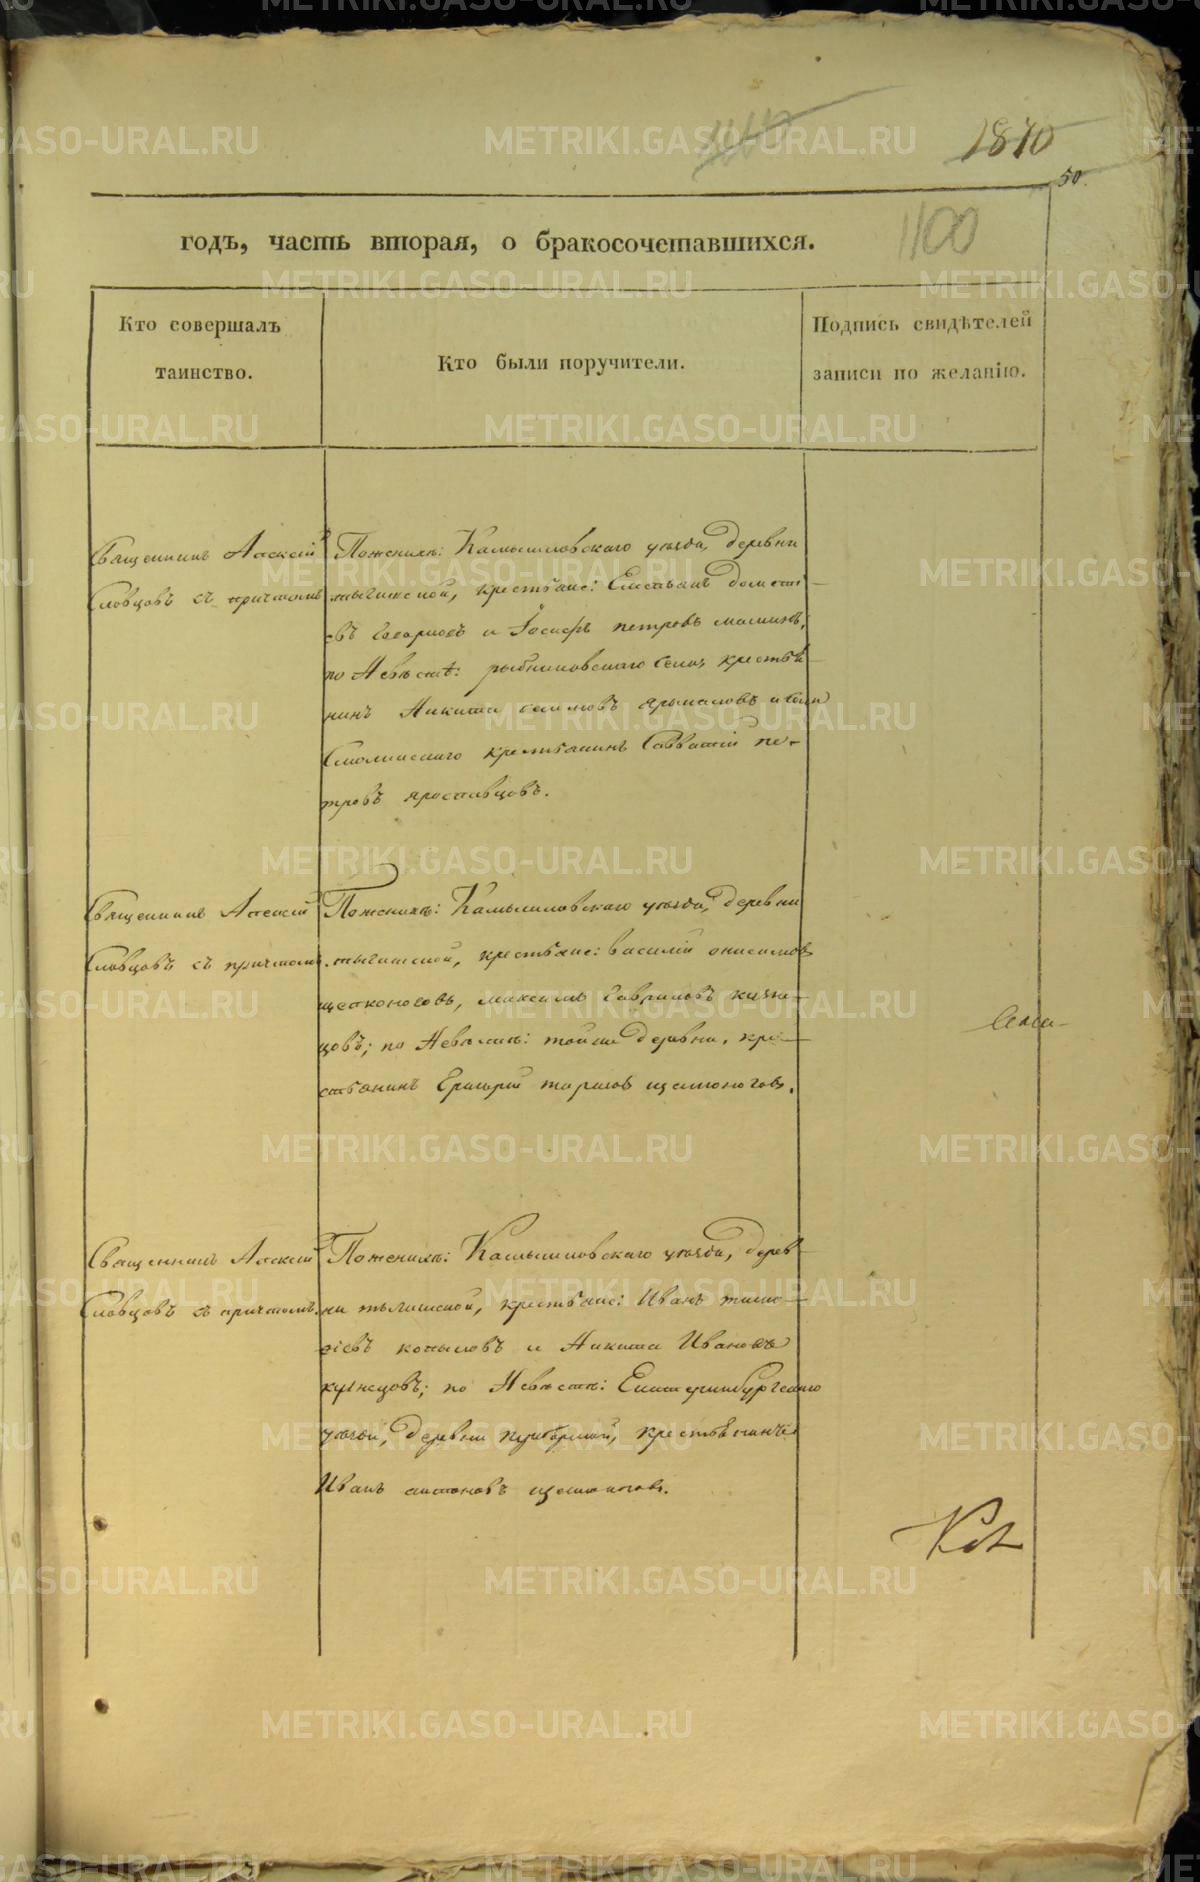 1870
50.
1100
годъ, часть вторая, о бракосочетавшихся.
Кто совершалъ
таинство.
Кто были поручители.
Подпись свидѣтелей
записи по желанію.
Священникъ Алексій
Словцовъ съ причтомъ
По женихѣ: Камышловскаго уѣзда, деревни
крестьяне:
и Іосифъ петровъ
по Невѣстѣ: села крестья-
нинъ Никита
крестьянинъ Савватій пе-
тровъ ярославцовъ.
Священникъ Алексій
Словцовъ съ причтомъ.
По женихѣ: Камышловскаго уѣзда, деревни
крестьяне: василій онисимовъ
щелконоговъ, максимъ Гавриловъ кузне-
цовъ; по Невѣстѣ: той же деревни, кре-
стьянинъ Григорій щелконоговъ.
Священникъ Алексій
Словцовъ съ причтомъ.
По женихѣ: Камышловскаго уѣзда, дерев-
ни крестьяне: Иванъ тимо-
ѳіевъ копыловъ и Никита Ивановъ
кузнецовъ; по Невѣстѣ: Екатеринбургскаго
уѣзда, деревни крестьянинъ
Иванъ антоновъ щелконоговъ.
METRIKI.GASO-URAL.RU